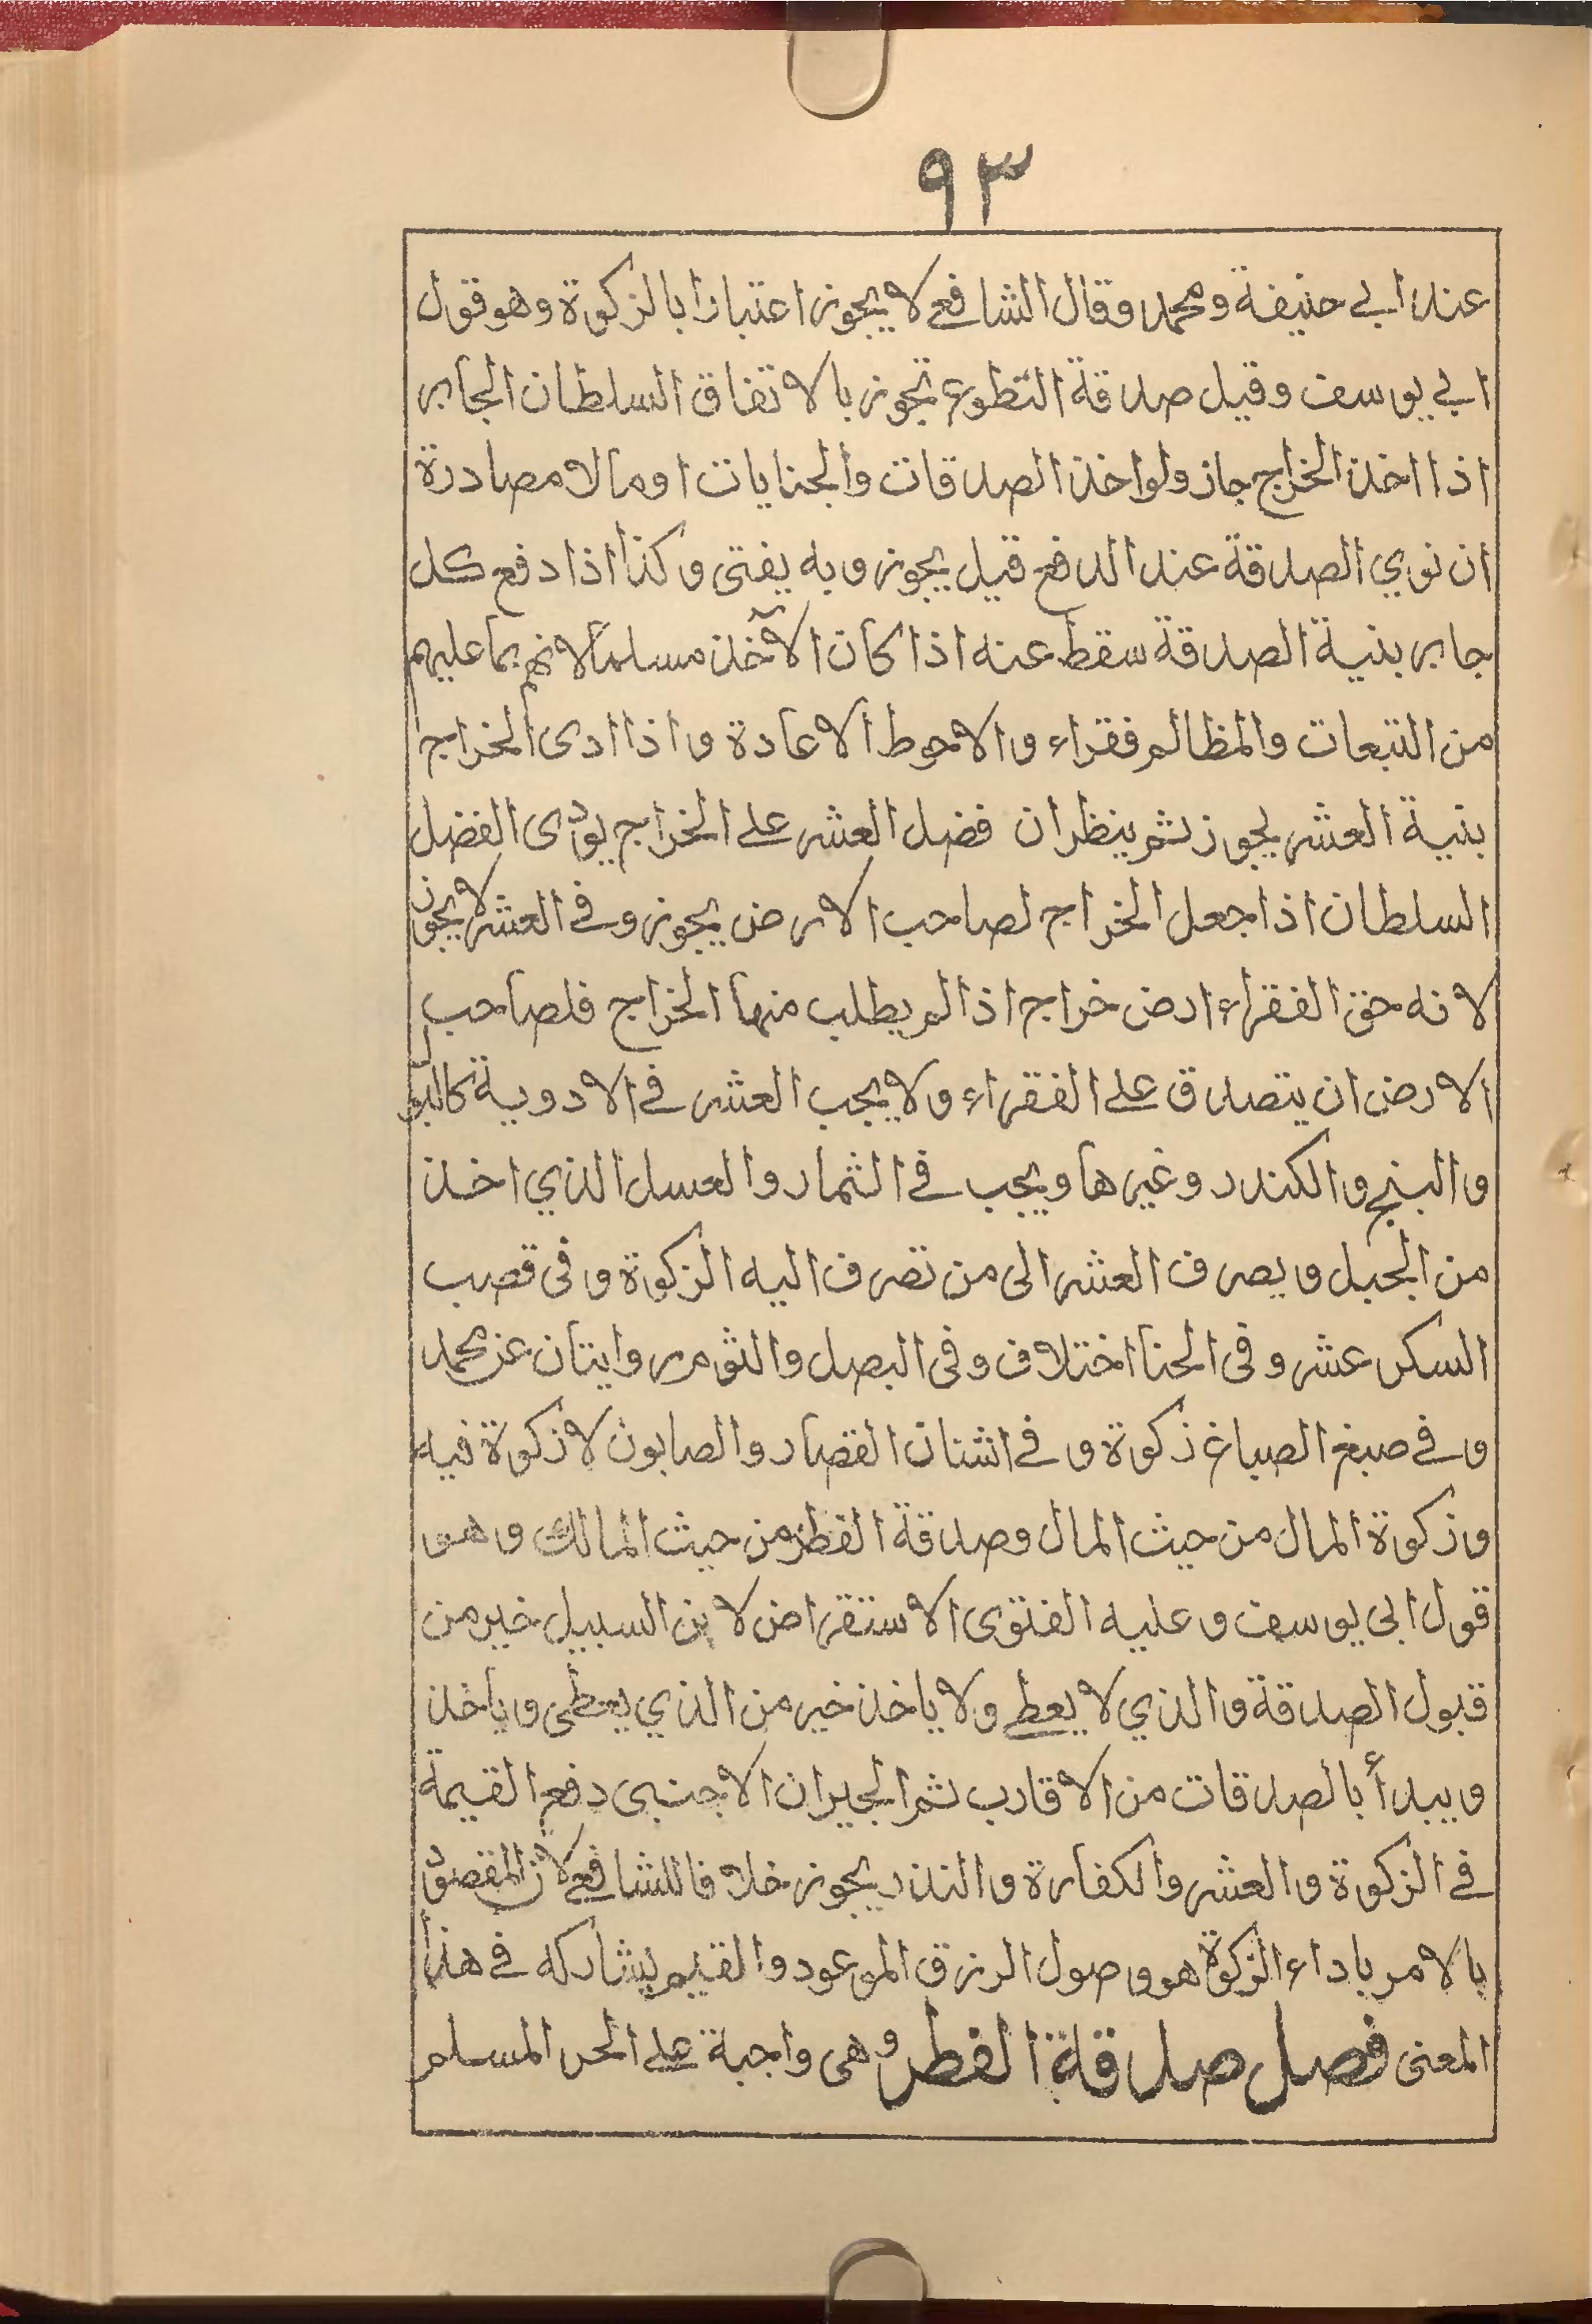 ٩٣
عند ابي حنيفة ومحمد وقال الشافعي لا يجوز اعتبارا بالزكوة وهو قول
ابي يوسف وقيل صدقة التطوع تجوز بالاتفاق السلطان الجابر
اذا اخذ الخراج جاز ولو اخذ الصدقات والجنايات او مالا مصادرة
ان نوي الصدقة عند الدفع قيل يجوز وبه يفتى وكذا اذا دفع كل
جابر بنية الصدقة سقط عنه اذا كان الآخذ مسلما لانهم بما عليهم
من التبعات والمظالم فقراء والاحوط الاعادة واذا ادى الخراج
بنية العشر يجوز ثم ينظر ان فضل العشر على الخراج يودى الفضل
السلطان اذا جعل الخراج لصاحب الارض يجوز وفي العشر لا يجوز
لانه حق الفقراء ارض خراج اذا لم يطلب منها الخراج فلصاحب
الارض ان يتصدق على الفقراء ولا يجب العشر في الادوية
والبنج والكندر وغيرها ويجب في الثمار والعسل الذي اخذ
من الجبل ويصرف العشر الى من تصرف اليه الزكوة وفى قصب
السكر عشر وفى الحنا اختلاف وفى البصل والثوم روايتان عن محمد
وفي صبغ الصباغ زكوة وفي اشنان القصار والصابون لا زكوة فيه
وزكوة المال من حيث المال وصدقة الفطر من حيث المالك وهو
قول ابى يوسف وعليه الفتوى الاستقراض لابن السبيل خير من
قبول الصدقة والذي لا يعطي ولا ياخذ خير من الذي يعطى وياخذ
ويبدأ بالصدقات من الاقارب ثم الجيران الاجنبى دفع القيمة
في الزكوة والعشر والكفارة والنذر يجوز خلافا للشافعي لان المقصود
بالامر باداء الزكوة هو وصول الرزق الموعود والقيم يشاركه في هذا
المعنى فصل صدقة الفطر وهى واجبة على الحر المسلم